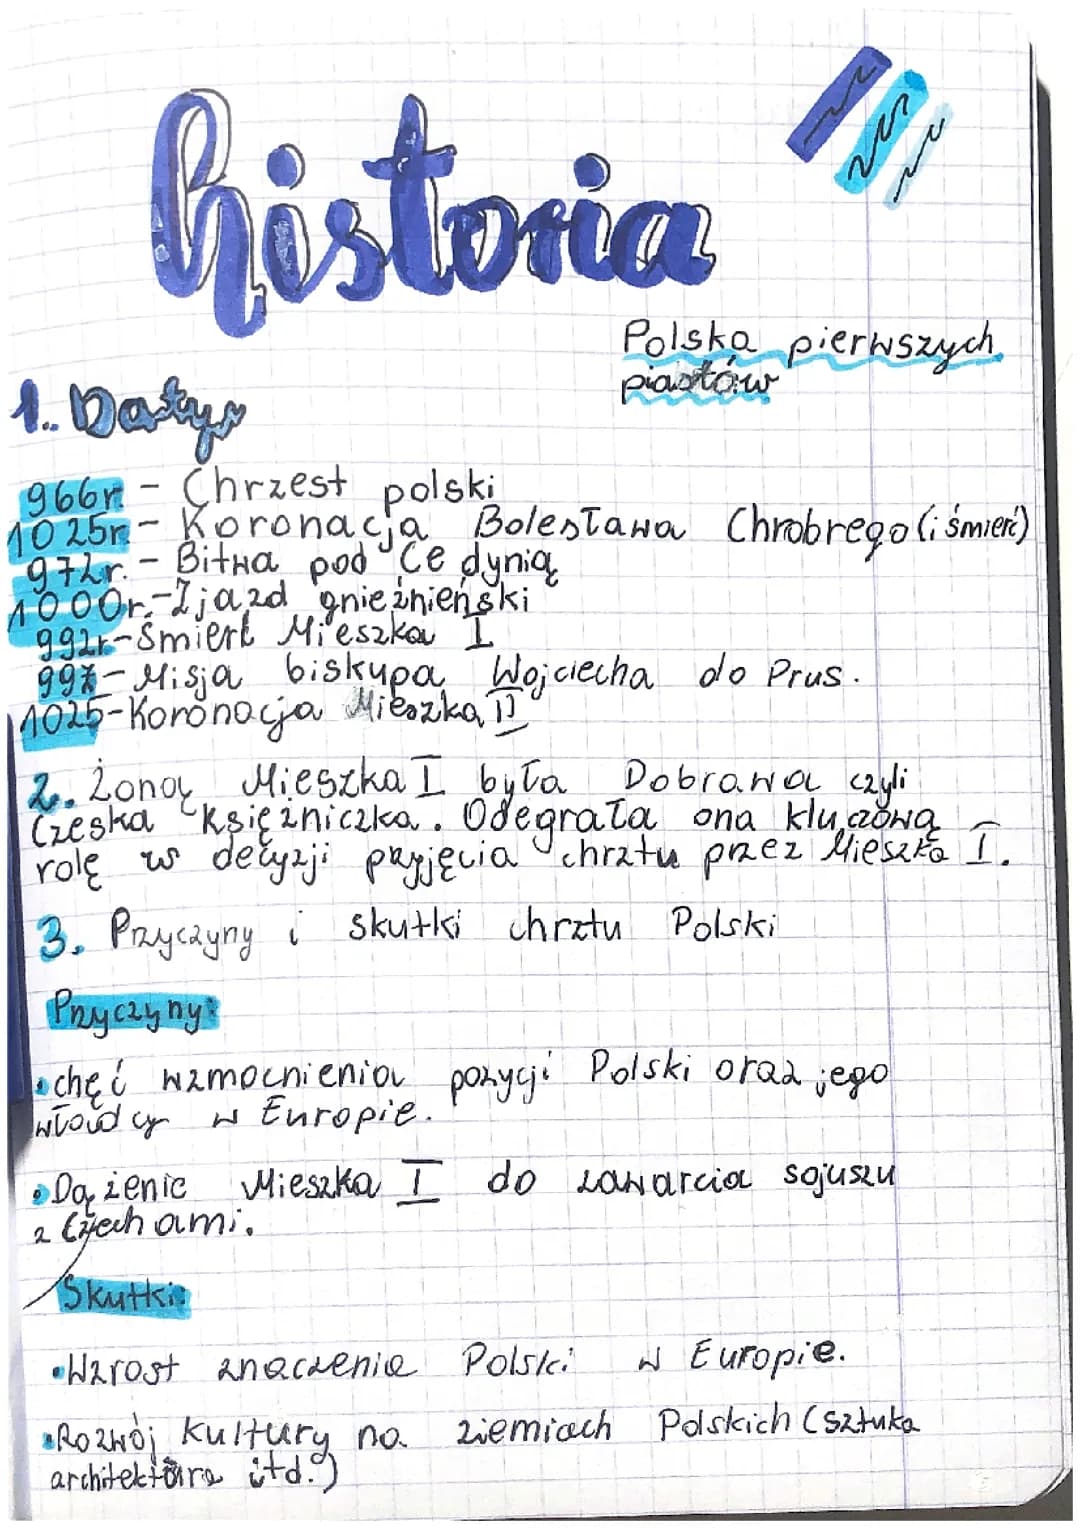 historia
Polska pierwszych
piastów
1. Daty
966r. - Chrzest polski
1025r - Koronacja Bolesława Chrobrego (i śmierć)
972r. - Bitwa pod Cedynią
1000r. - Zjazd gnieźnieński
992r - Śmierć Mieszka I
997 - Misja biskupa Wojciecha do Prus.
1025 - Koronacja Mieszka II
2. Żoną Mieszka I była Dobrawa czyli
Czeska Księżniczka. Odegrała ona kluczową
rolę w decyzji przyjęcia chrztu przez Mieszka I.
3. Przyczyny i skutki chrztu Polski
Przyczyny:
• chęć wzmocnienia pozycji Polski oraz jego
władcy w Europie.
• Dążenie Mieszka I do zawarcia sojuszu
z Czechami.
Skutki:
• Wzrost znaczenia Polski w Europie.
• Rozwój kultury na ziemiach Polskich (sztuka
architektura itd.)